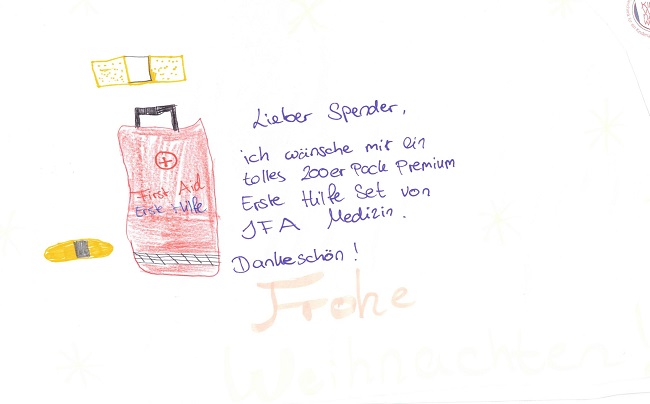 Lieber Spender,
ich wünsche mir ein
tolles 200er Pack Premium
Erste Hilfe Set von
JFA Medizin.
Dankeschön!
First Aid
Erste Hilfe
Frohe
Weihnachten!